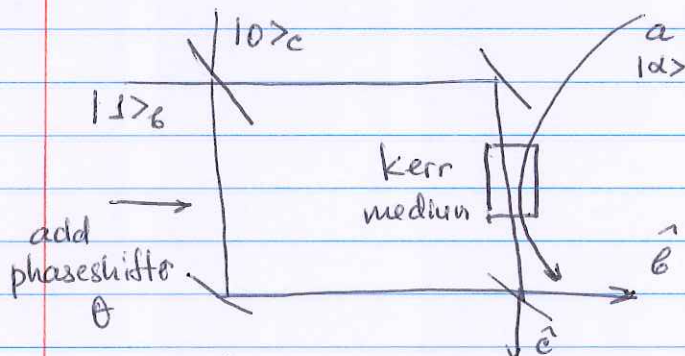 |0>c
a
|1>b
|α>
kerr
medium
add
phaseshifter
θ
b̂
ĉ